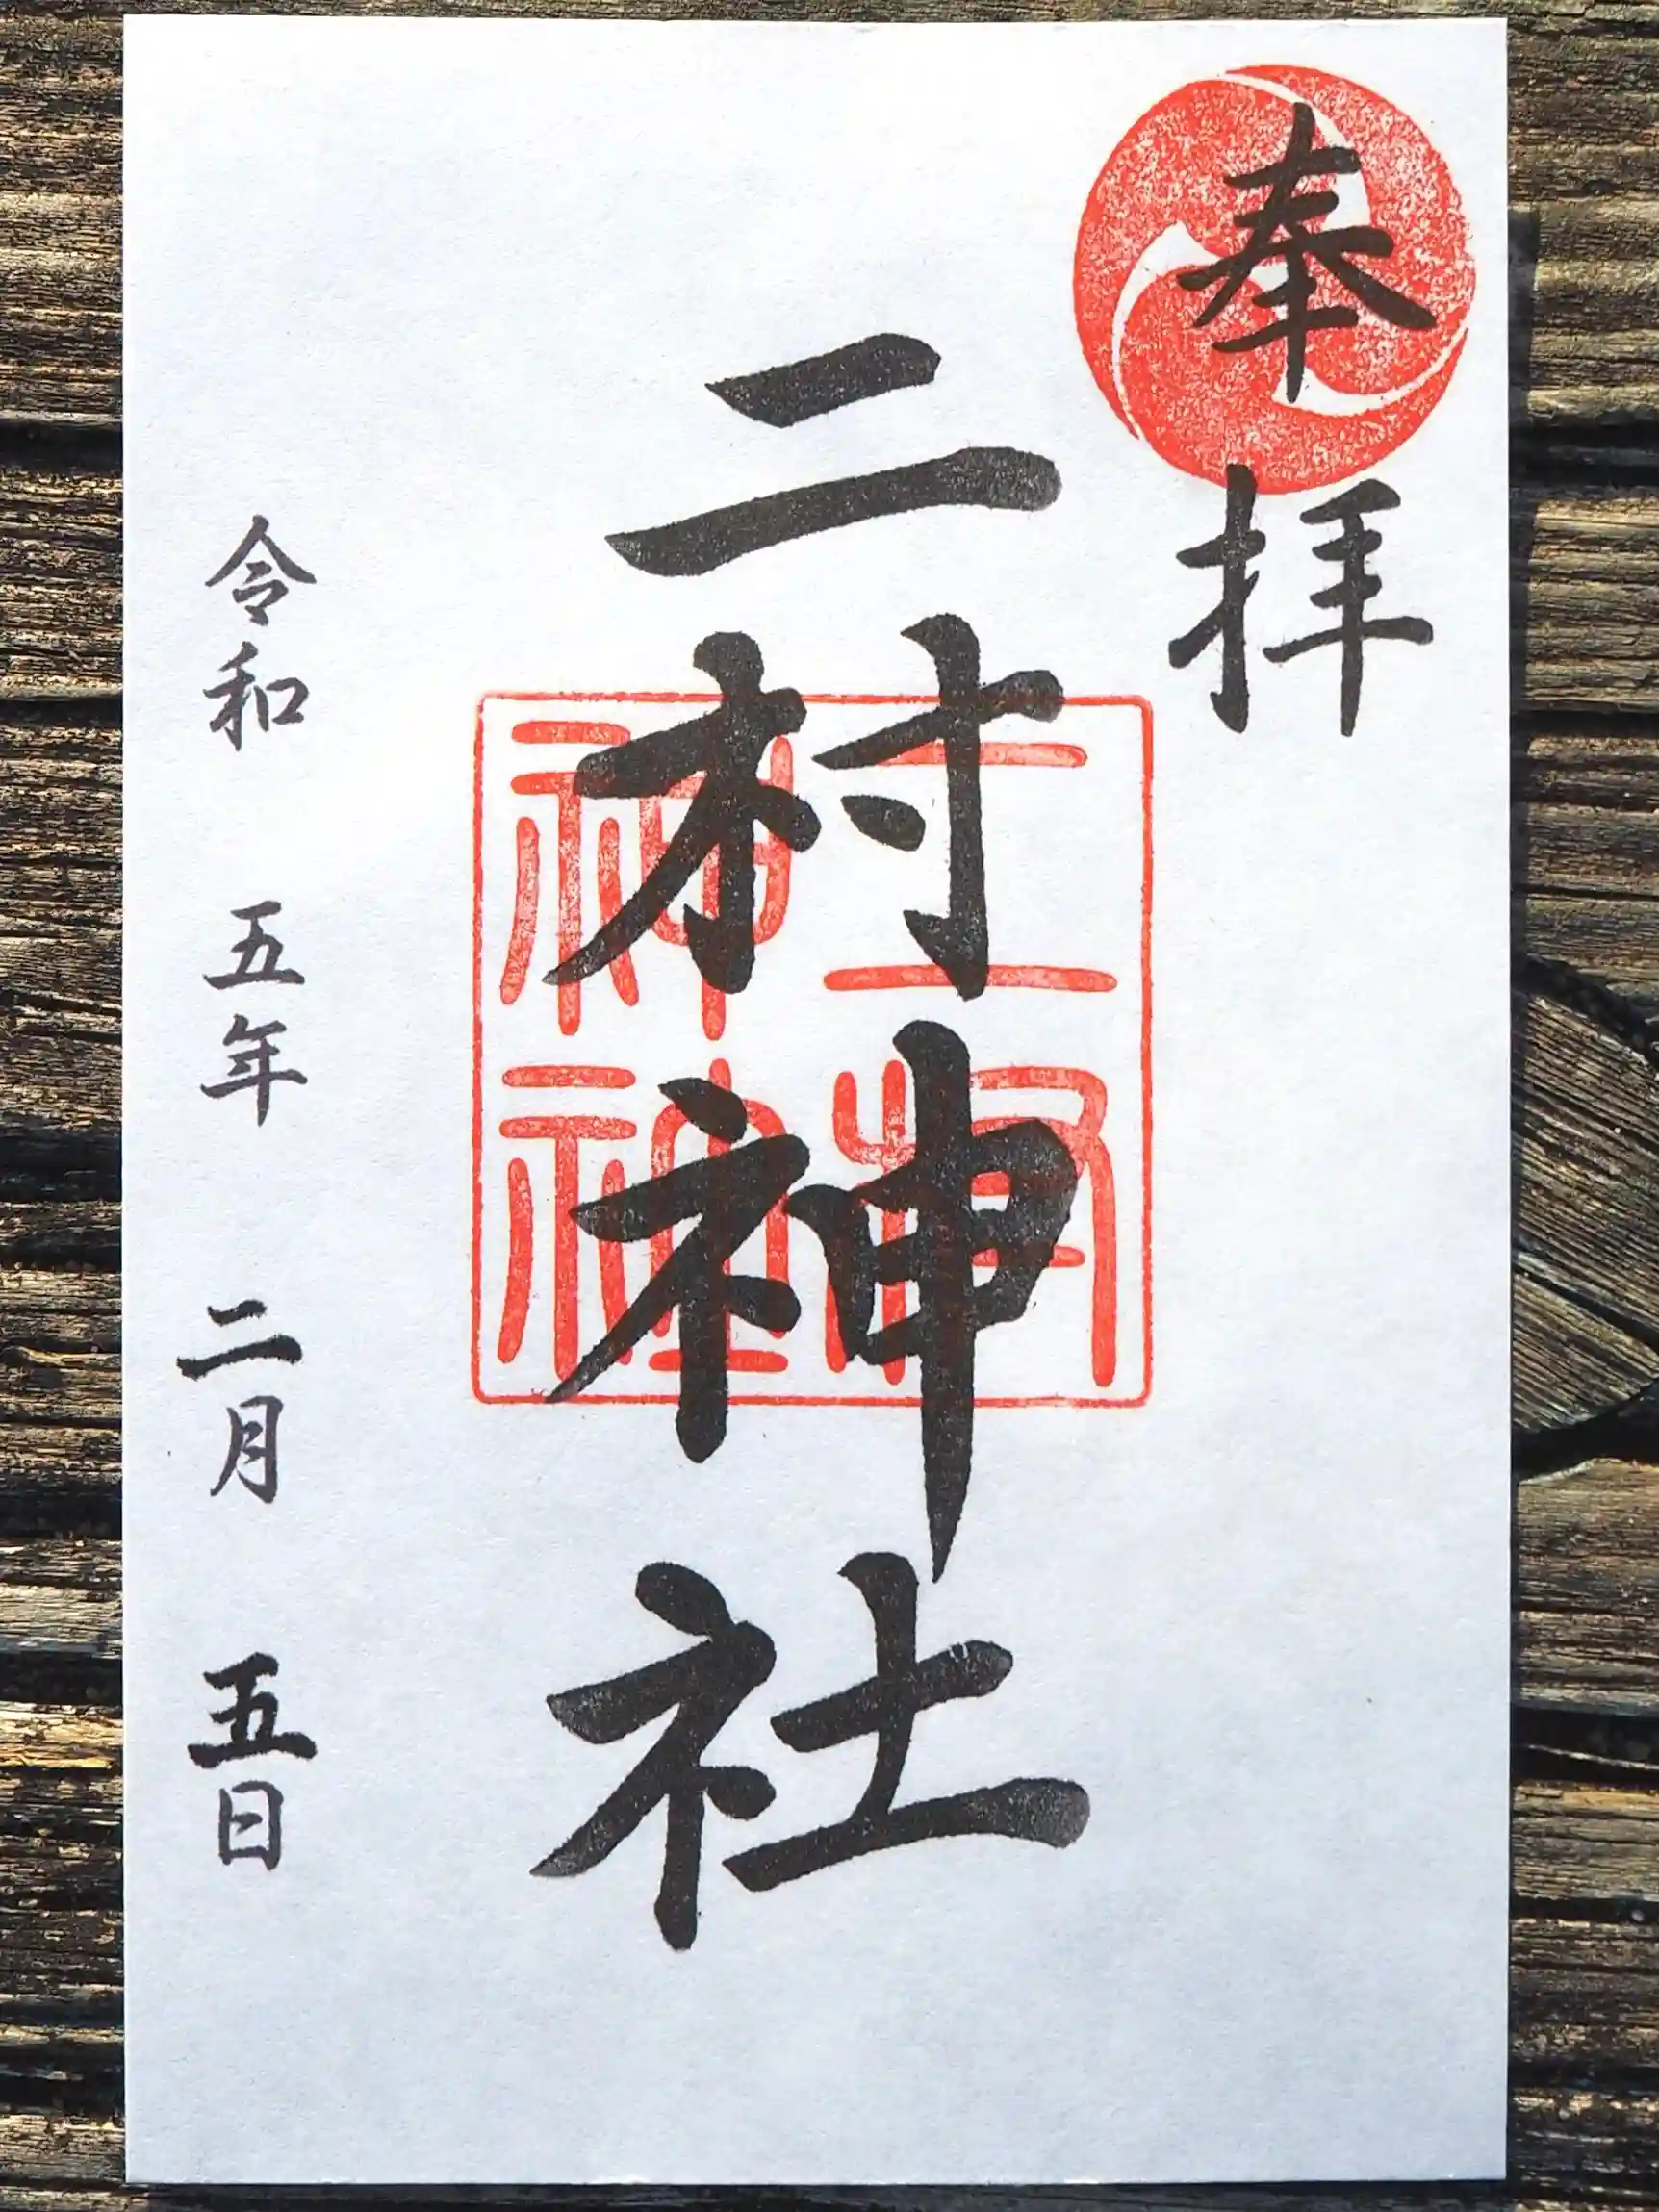 奉拝
二村神社
二村神社
令和 五年 二月 五日